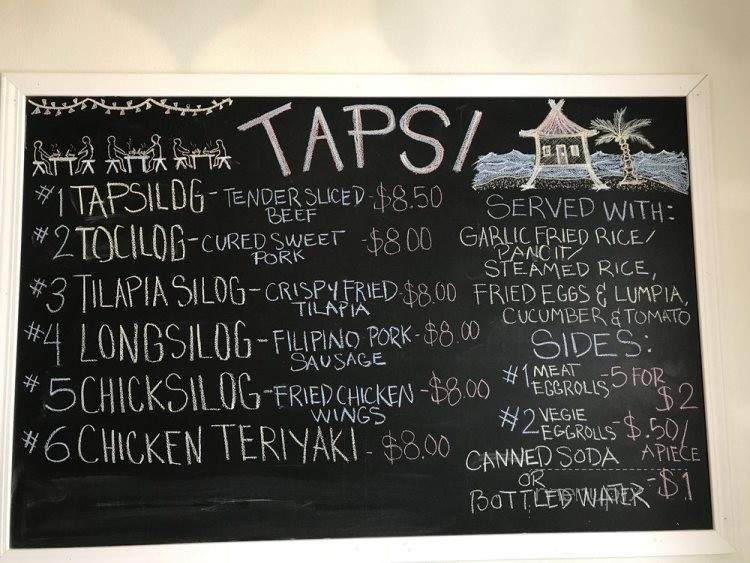 TAPSI
#1 TAPSILOG - TENDER SLICED - $8.50
BEEF
#2 TOCILOG - CURED SWEET - $8.00
PORK
#3 TILAPIA SILOG - CRISPY FRIED - $8.00
TILAPIA
#4 LONGSILOG - FILIPINO PORK - $8.00
SAUSAGE
#5 CHICKSILOG - FRIED CHICKEN - $8.00
WINGS
#6 CHICKEN TERIYAKI - $8.00
SERVED WITH:
GARLIC FRIED RICE/
PANCIT/
STEAMED RICE,
FRIED EGGS & LUMPIA,
CUCUMBER & TOMATO
SIDES:
#1 MEAT EGGROLLS - 5 FOR
$2
#2 VEGIE EGGROLLS - $.50/
APIECE
CANNED SODA
OR
BOTTLED WATER - $1